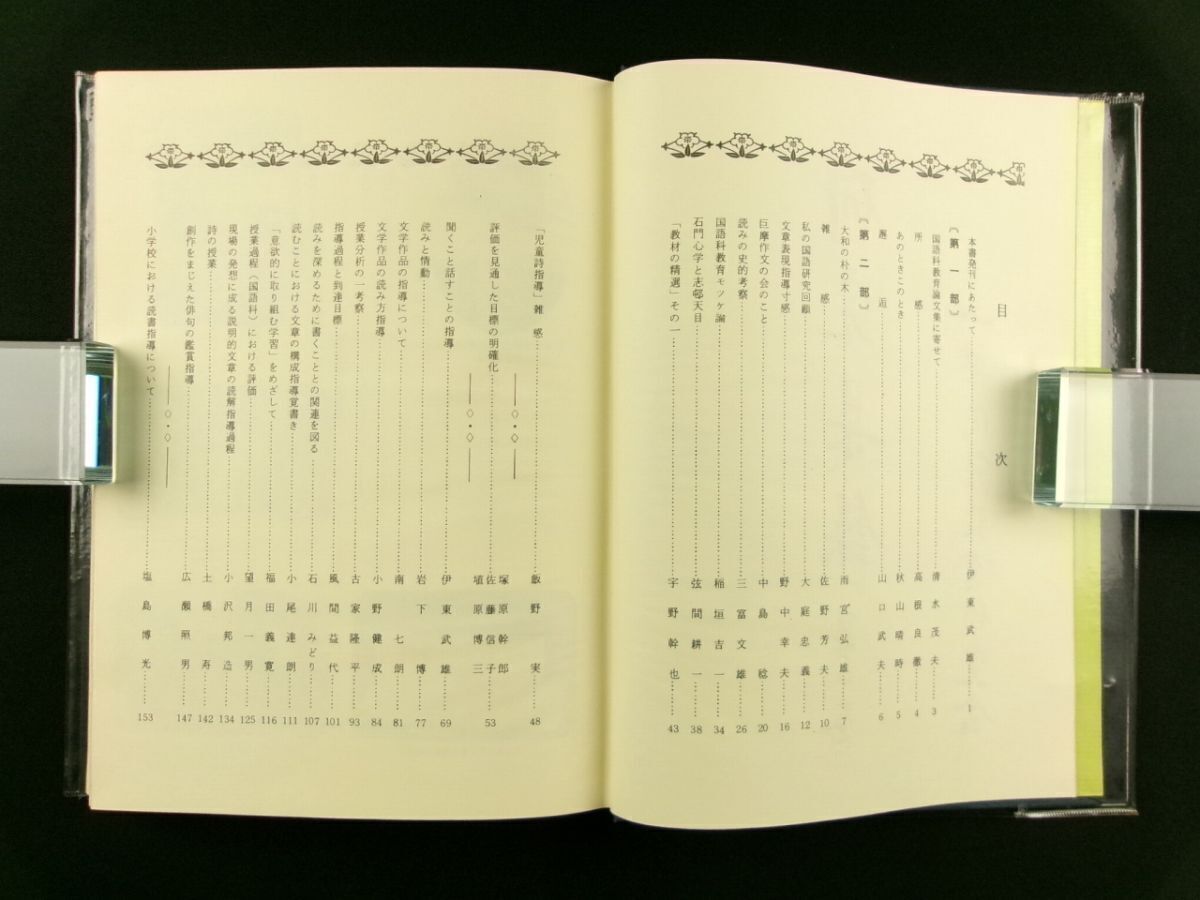 目次
本書発刊にあたって……伊東武雄……1
〔第一部〕
国語科教育論文集に寄せて……清水茂夫……3
所感……高根良徹……4
あのときこのとき……秋山晴時……5
邂逅……山口武夫……6
〔第二部〕
大和の朴の木……雨宮弘雄……7
雑感……佐野芳夫……10
私の国語研究回顧……大庭忠義……12
文章表現指導寸感……野中幸夫……16
巨摩作文の会のこと……中島稔……20
読みの史的考察……三富文雄……26
国語科教育モツケ論……稲垣吉一……34
石門心学と志邨天目……弦間耕一……38
「教材の精選」その一……宇野幹也……43
「児童詩指導」雑感……飯野実……48
――◇・◇――
評価を見通した目標の明確化……塚原幹郎 佐藤信子 埴原博三……53
――◇・◇――
聞くこと話すことの指導……伊東武雄……69
読みと情動……岩下博……77
文学作品の指導について……南七朗……81
文学作品の読み方指導……小野健成……84
授業分析の一考察……古家隆平……93
指導過程と到達目標……風間益代……101
読みを深めるために書くこととの関連を図る……石川みどり……107
読むことにおける文章の構成指導覚書き……小尾達朗……111
「意欲的に取り組む学習」をめざして……福田義寛……116
授業過程(国語科)における評価……望月一男……125
現場の発想に成る説明的文章の読解指導過程……小沢邦造……134
詩の授業……土橋寿……142
創作をまじえた俳句の鑑賞指導……広瀬照男……147
――◇・◇――
小学校における読書指導について……塩島博光……153